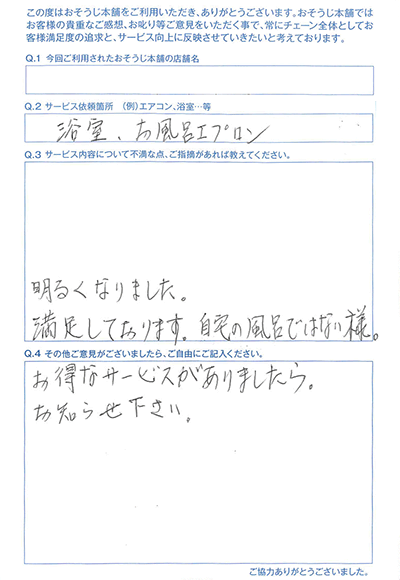 この度はおそうじ本舗をご利用いただき、ありがとうございます。おそうじ本舗では
お客様の貴重なご感想、お叱り等ご意見をいただく事で、常にチェーン全体としてお
客様満足度の追求と、サービス向上に反映させていきたいと考えております。
Q.1 今回ご利用されたおそうじ本舗の店舗名
Q.2 サービス依頼箇所 (例)エアコン、浴室…等
浴室、お風呂エプロン
Q.3 サービス内容について不満な点、ご指摘があれば教えてください。
明るくなりました。
満足しております。自宅の風呂ではない様。
Q.4 その他ご意見がございましたら、ご自由にご記入ください。
お得なサービスがありましたら。
お知らせ下さい。
ご協力ありがとうございました。